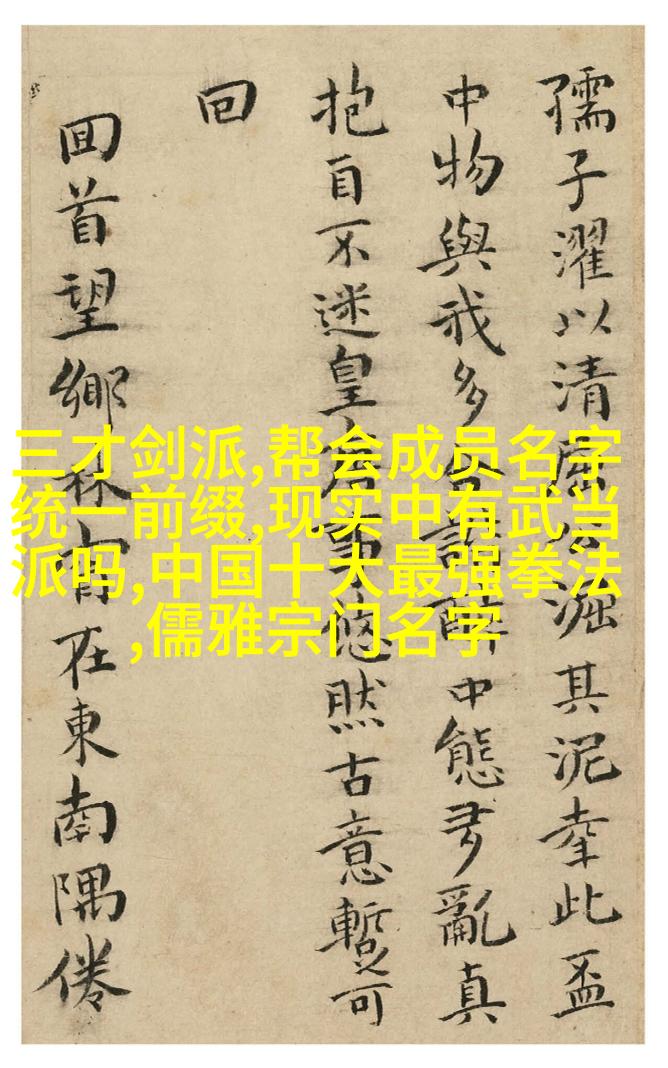 孺子濯以清屈淈其泥幸此盃
中物與我多醉中態多亂真
抱自不迷皇然古意暫可
回
囬首望鄉林在東南隅倦
三才剑派,帮会成员名字
统一前缀,现实中有武当
派吗,中国十大最强拳法
,儒雅宗门名字